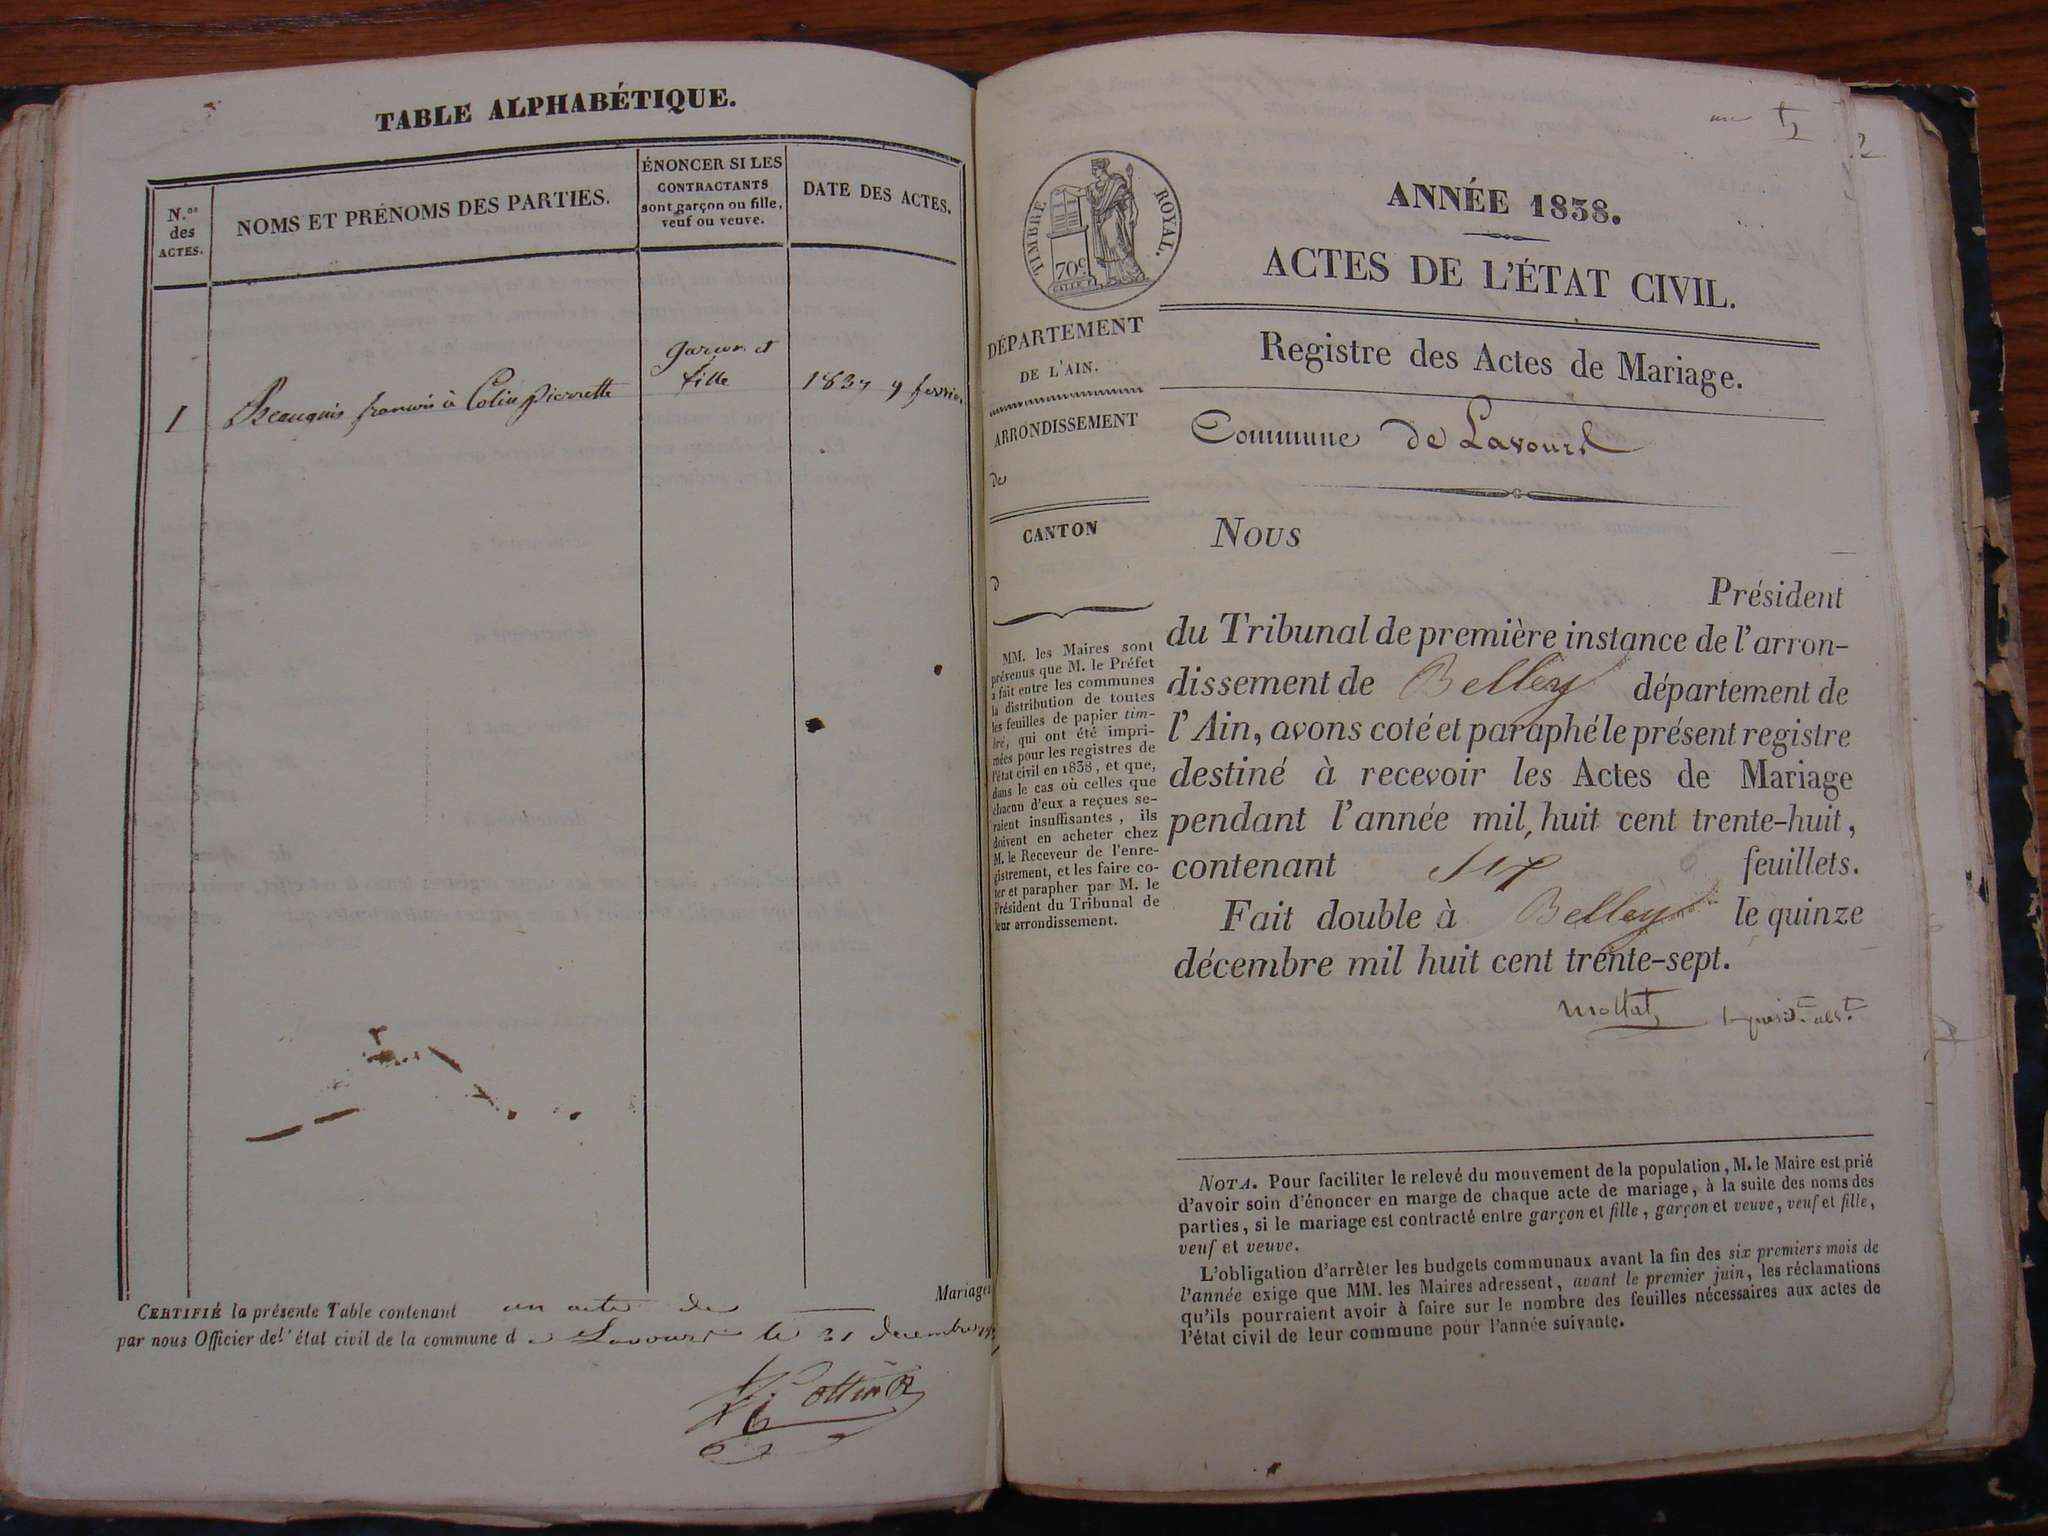 TABLE ALPHABÉTIQUE.
N.os
des
ACTES.
NOMS ET PRÉNOMS DES PARTIES.
ÉNONCER SI LES
CONTRACTANTS
sont garçon ou fille,
veuf ou veuve.
DATE DES ACTES.
garcon et
fille
1 Beauquis francois à Colin pierrette
1837 9 fevrier
Mariages
CERTIFIÉ la présente Table contenant un acte de
par nous Officier de l'état civil de la commune de Lavours le 31 decembre
une
2
TIMBRE ROYAL.
70c
ANNÉE 1838.
ACTES DE L'ÉTAT CIVIL.
Registre des Actes de Mariage.
Commune de Lavours
DÉPARTEMENT
DE L'AIN.
ARRONDISSEMENT
de
CANTON
d
MM. les Maires sont
prévenus que M. le Préfet
a fait entre les communes
la distribution de toutes
les feuilles de papier tim-
bré, qui ont été impri-
mées pour les registres de
l'état civil en 1838, et que,
dans le cas où celles que
chacun d'eux a reçues se-
raient insuffisantes, ils
doivent en acheter chez
M. le Receveur de l'enre-
gistrement, et les faire co-
ter et parapher par M. le
Président du Tribunal de
leur arrondissement.
Nous
Président
du Tribunal de première instance de l'arron-
dissement de Belley département de
l'Ain, avons coté et paraphé le présent registre
destiné à recevoir les Actes de Mariage
pendant l'année mil huit cent trente-huit,
contenant six feuillets.
Fait double à Belley le quinze
décembre mil huit cent trente-sept.
Mollat
NOTA. Pour faciliter le relevé du mouvement de la population, M. le Maire est prié
d'avoir soin d'énoncer en marge de chaque acte de mariage, à la suite des noms des
parties, si le mariage est contracté entre garçon et fille, garçon et veuve, veuf et fille,
veuf et veuve.
L'obligation d'arrêter les budgets communaux avant la fin des six premiers mois de
l'année exige que MM. les Maires adressent, avant le premier juin, les réclamations
qu'ils pourraient avoir à faire sur le nombre des feuilles nécessaires aux actes de
l'état civil de leur commune pour l'année suivante.